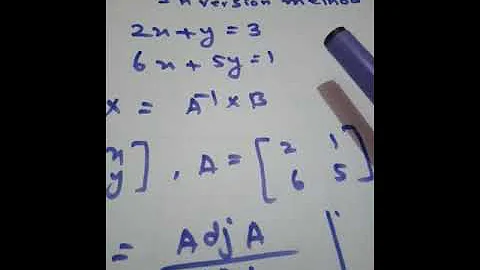 nversion method
2x+y=3
6x+5y=1
X = A⁻¹ x B
x
y ] , A = [ 2 1
6 5 ]
= Adj A